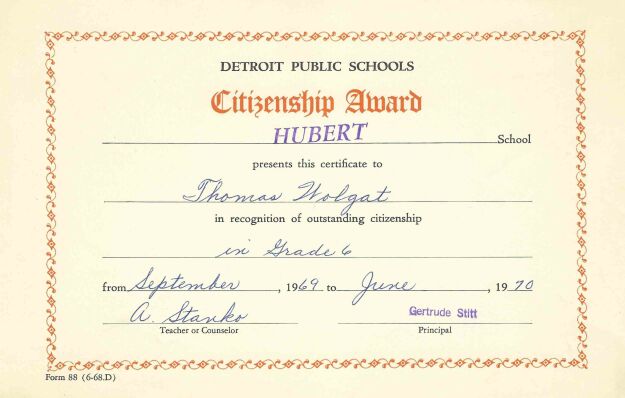 DETROIT PUBLIC SCHOOLS
Citizenship Award
HUBERT School
presents this certificate to
Thomas Wolgat
in recognition of outstanding citizenship
in Grade 6
from September, 1969 to June, 1970
A. Stanko Gertrude Stitt
Teacher or Counselor Principal
Form 88 (6-68.D)